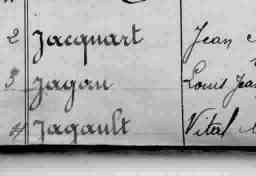 2 Jacquart Jean
3 Jagou Louis Jean
4 Jagault Vital